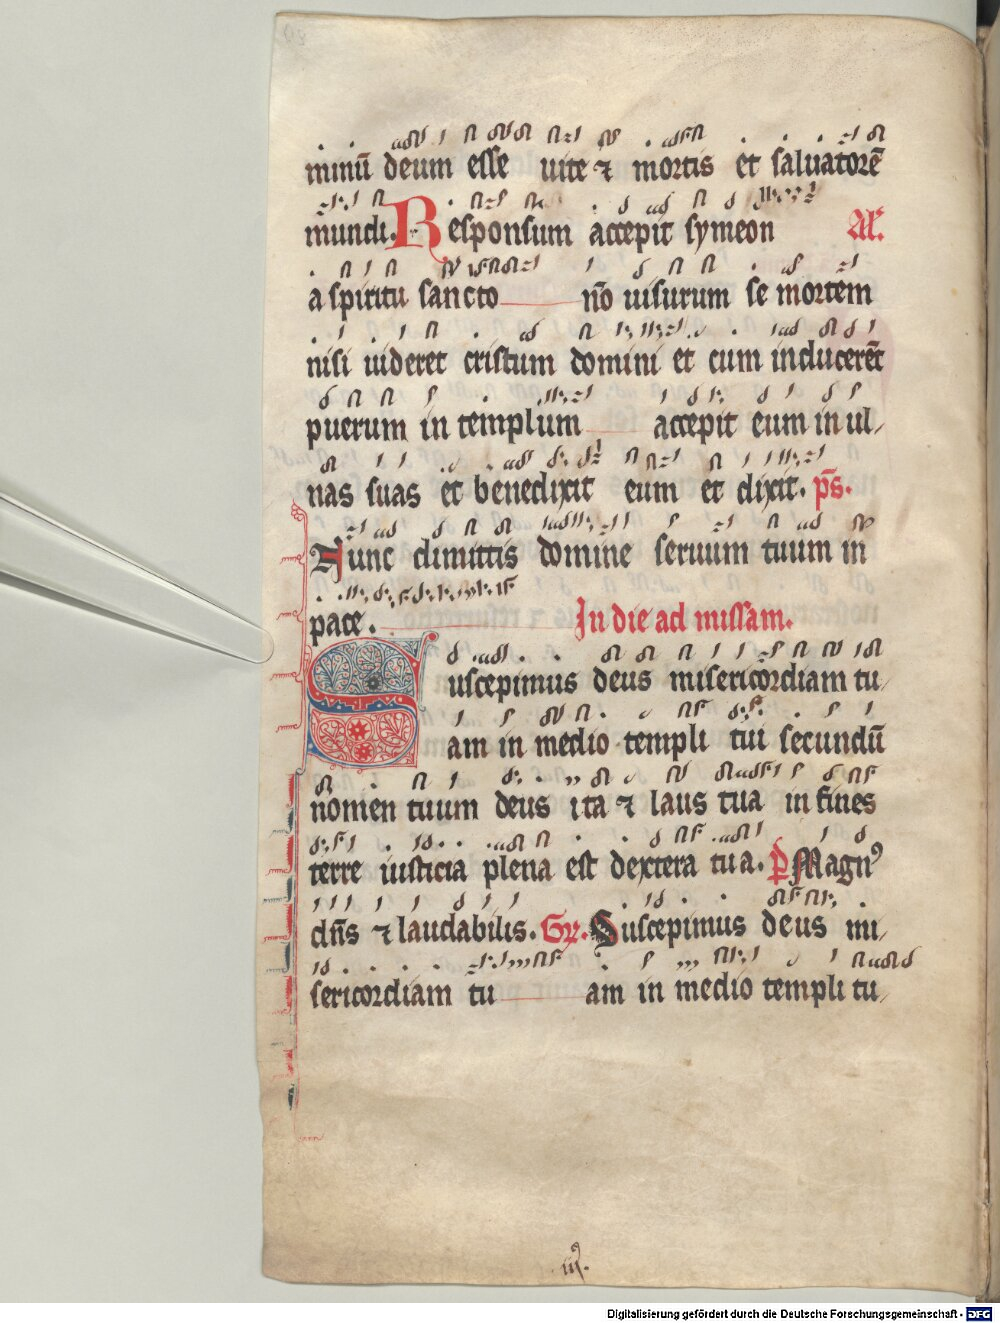 minū deum esse uite ⁊ mortis et saluatorē
mundi. Responsum accepit symeon Al'.
a spiritu sancto nō uisurum se mortem
nisi uideret cristum domini et cum inducerēt
puerum in templum accepit eum in ul
nas suas et benedixit eum et dixit. p̄s.
Nunc dimittis domine seruum tuum in
pace. In die ad missam.
Suscepimus deus misericordiam tu
am in medio templi tui secundū
nomen tuum deus ita ⁊ laus tua in fines
terre iusticia plena est dextera tua. P̄ Magnꝰ
dn̄s ⁊ laudabilis. Gr̄. Suscepimus deus mi
sericordiam tu am in medio templi tu
iijꝰ.
Digitalisierung gefördert durch die Deutsche Forschungsgemeinschaft - DFG